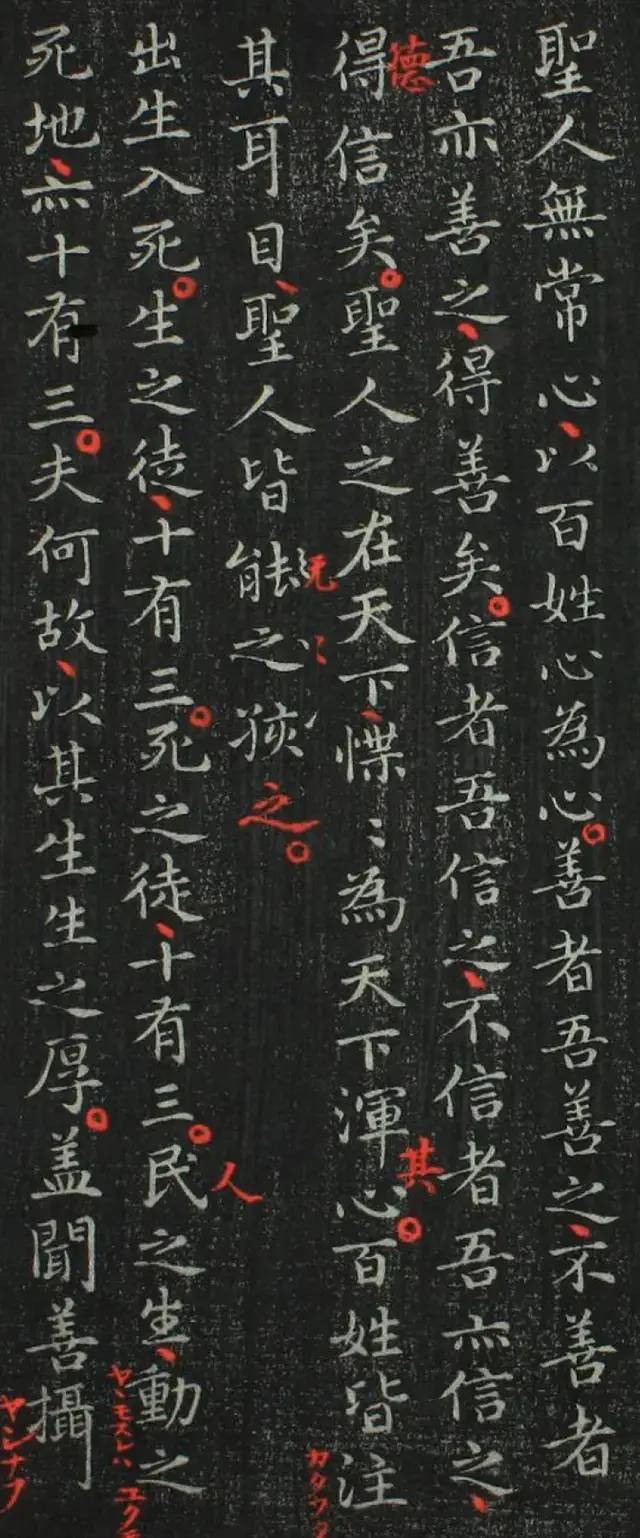 聖人無常心、以百姓心為心。善者吾善之、不善者
吾亦善之、得善矣。信者吾信之、不信者吾亦信之、
德
得信矣。聖人之在天下、惵〻為天下渾心。百姓皆注
其
其耳目、聖人皆能之孩之。
出生入死。生之徒、十有三。死之徒、十有三。民之生、動之
人
死地、亦十有三。夫何故、以其生生之厚。盖聞善攝
ヤシナフ